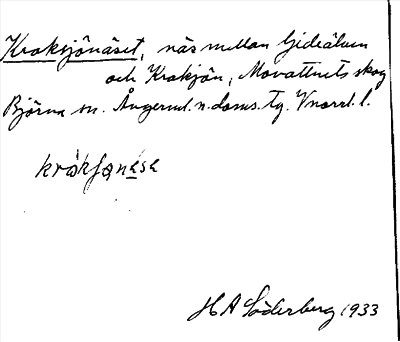 Kroksjönäset, näs mellan Gideälven
och Kroksjön, Movattnets skog
Björna sn. Ångerml. n. doms. tg. Vnorrl. l.
H A Söderberg 1933